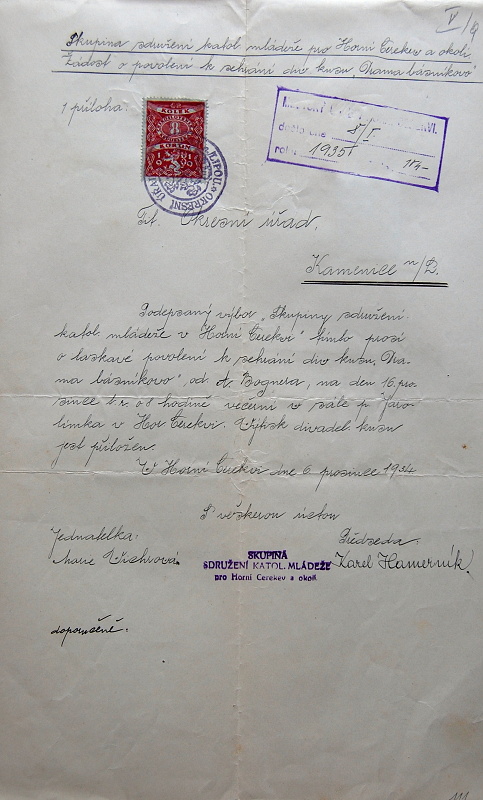 V/9
Skupina sdružení katol mládeže pro Horní Cerekev a okolí
Žádost o povolení k sehrání div kusu "Mama básníkova"
1 příloha:
KOLEK
8
KORUN
OKRESNÍ ÚŘAD
došlo dne 8/I.
roku 1935
Sl. Okresní úřad,
Kamenice n/L.
Podepsaný výbor „Skupiny sdružení
katol. mládeže v Horní Cerekvi" tímto prosí
o laskavé povolení k sehrání div kusu „Ma-
ma básníkova" od A. Bognera, na den 16. pro-
since t. r. o 8 hodině večerní v sále p. Jaro-
límka v Hor Cerekvi. Výtisk divadel kusu
jest přiložen.
V Horní Cerekvi dne 6. prosince 1934
S veškerou úctou
Jednatelka:
Předseda:
Marie
Karel Hamerník
SKUPINA
SDRUŽENÍ KATOL. MLÁDEŽE
pro Horní Cerekev a okolí
doporučeně: